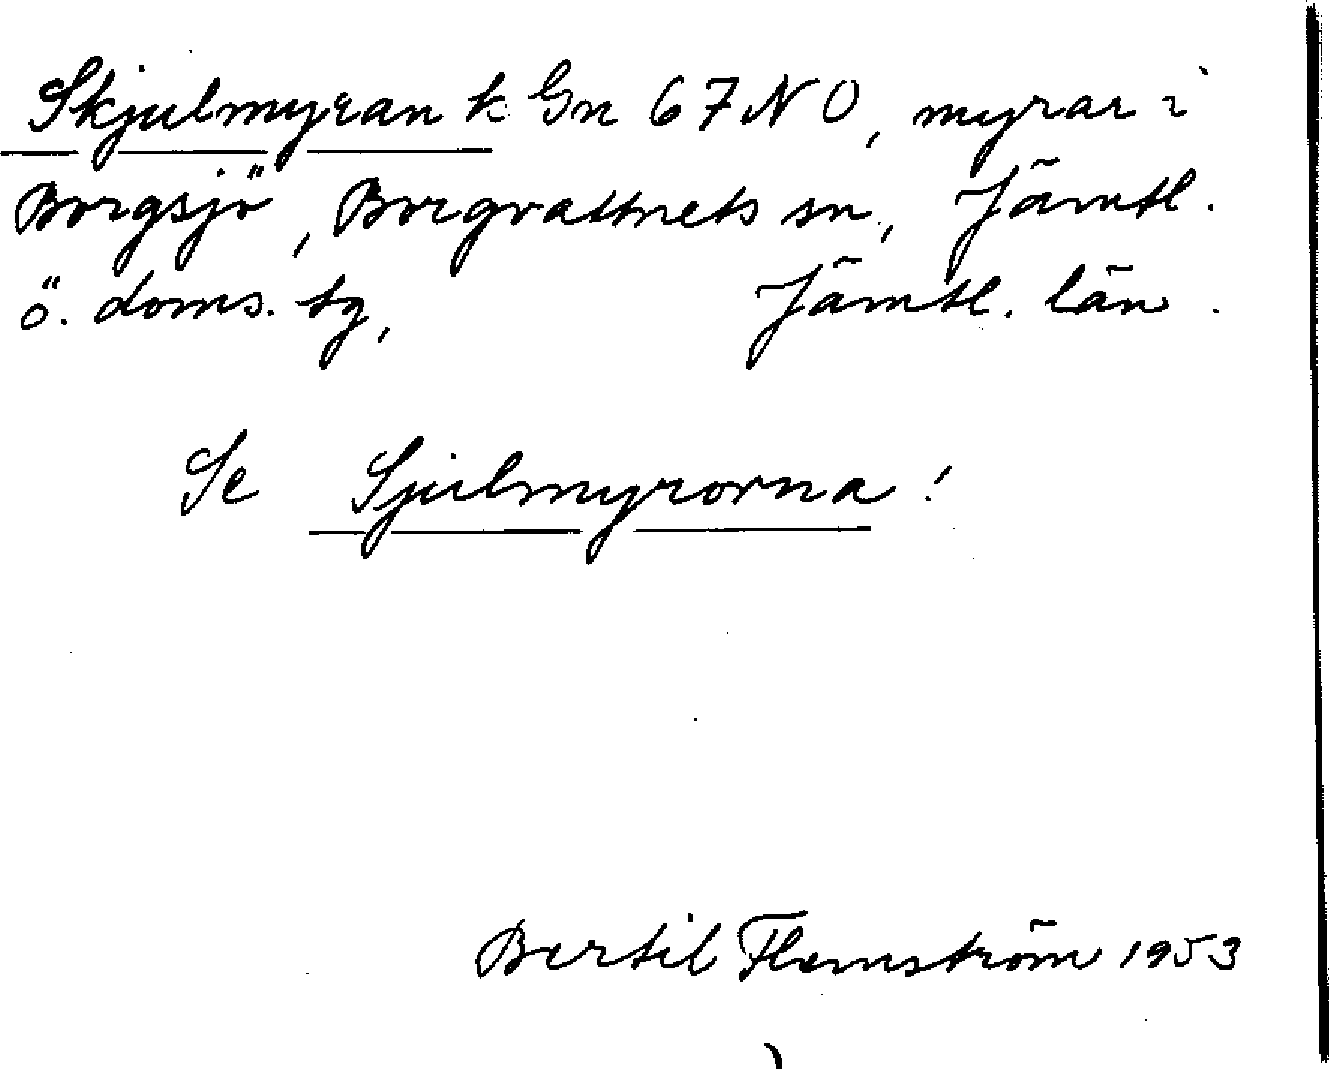 Skjulmyran k Gn 67 NO, myrar i
Borgsjö, Borgvattnets sn, Jämtl.
ö. doms. tg, Jämtl. län.
Se Sjulmyrorna!
Bertil Flemström 1953